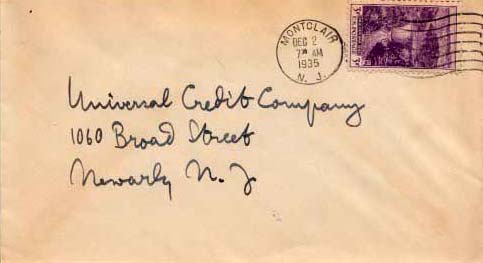 MONTCLAIR
DEC 2
7 AM
1935
N. J.
Universal Credit Company
1060 Broad Street
Newark N. J